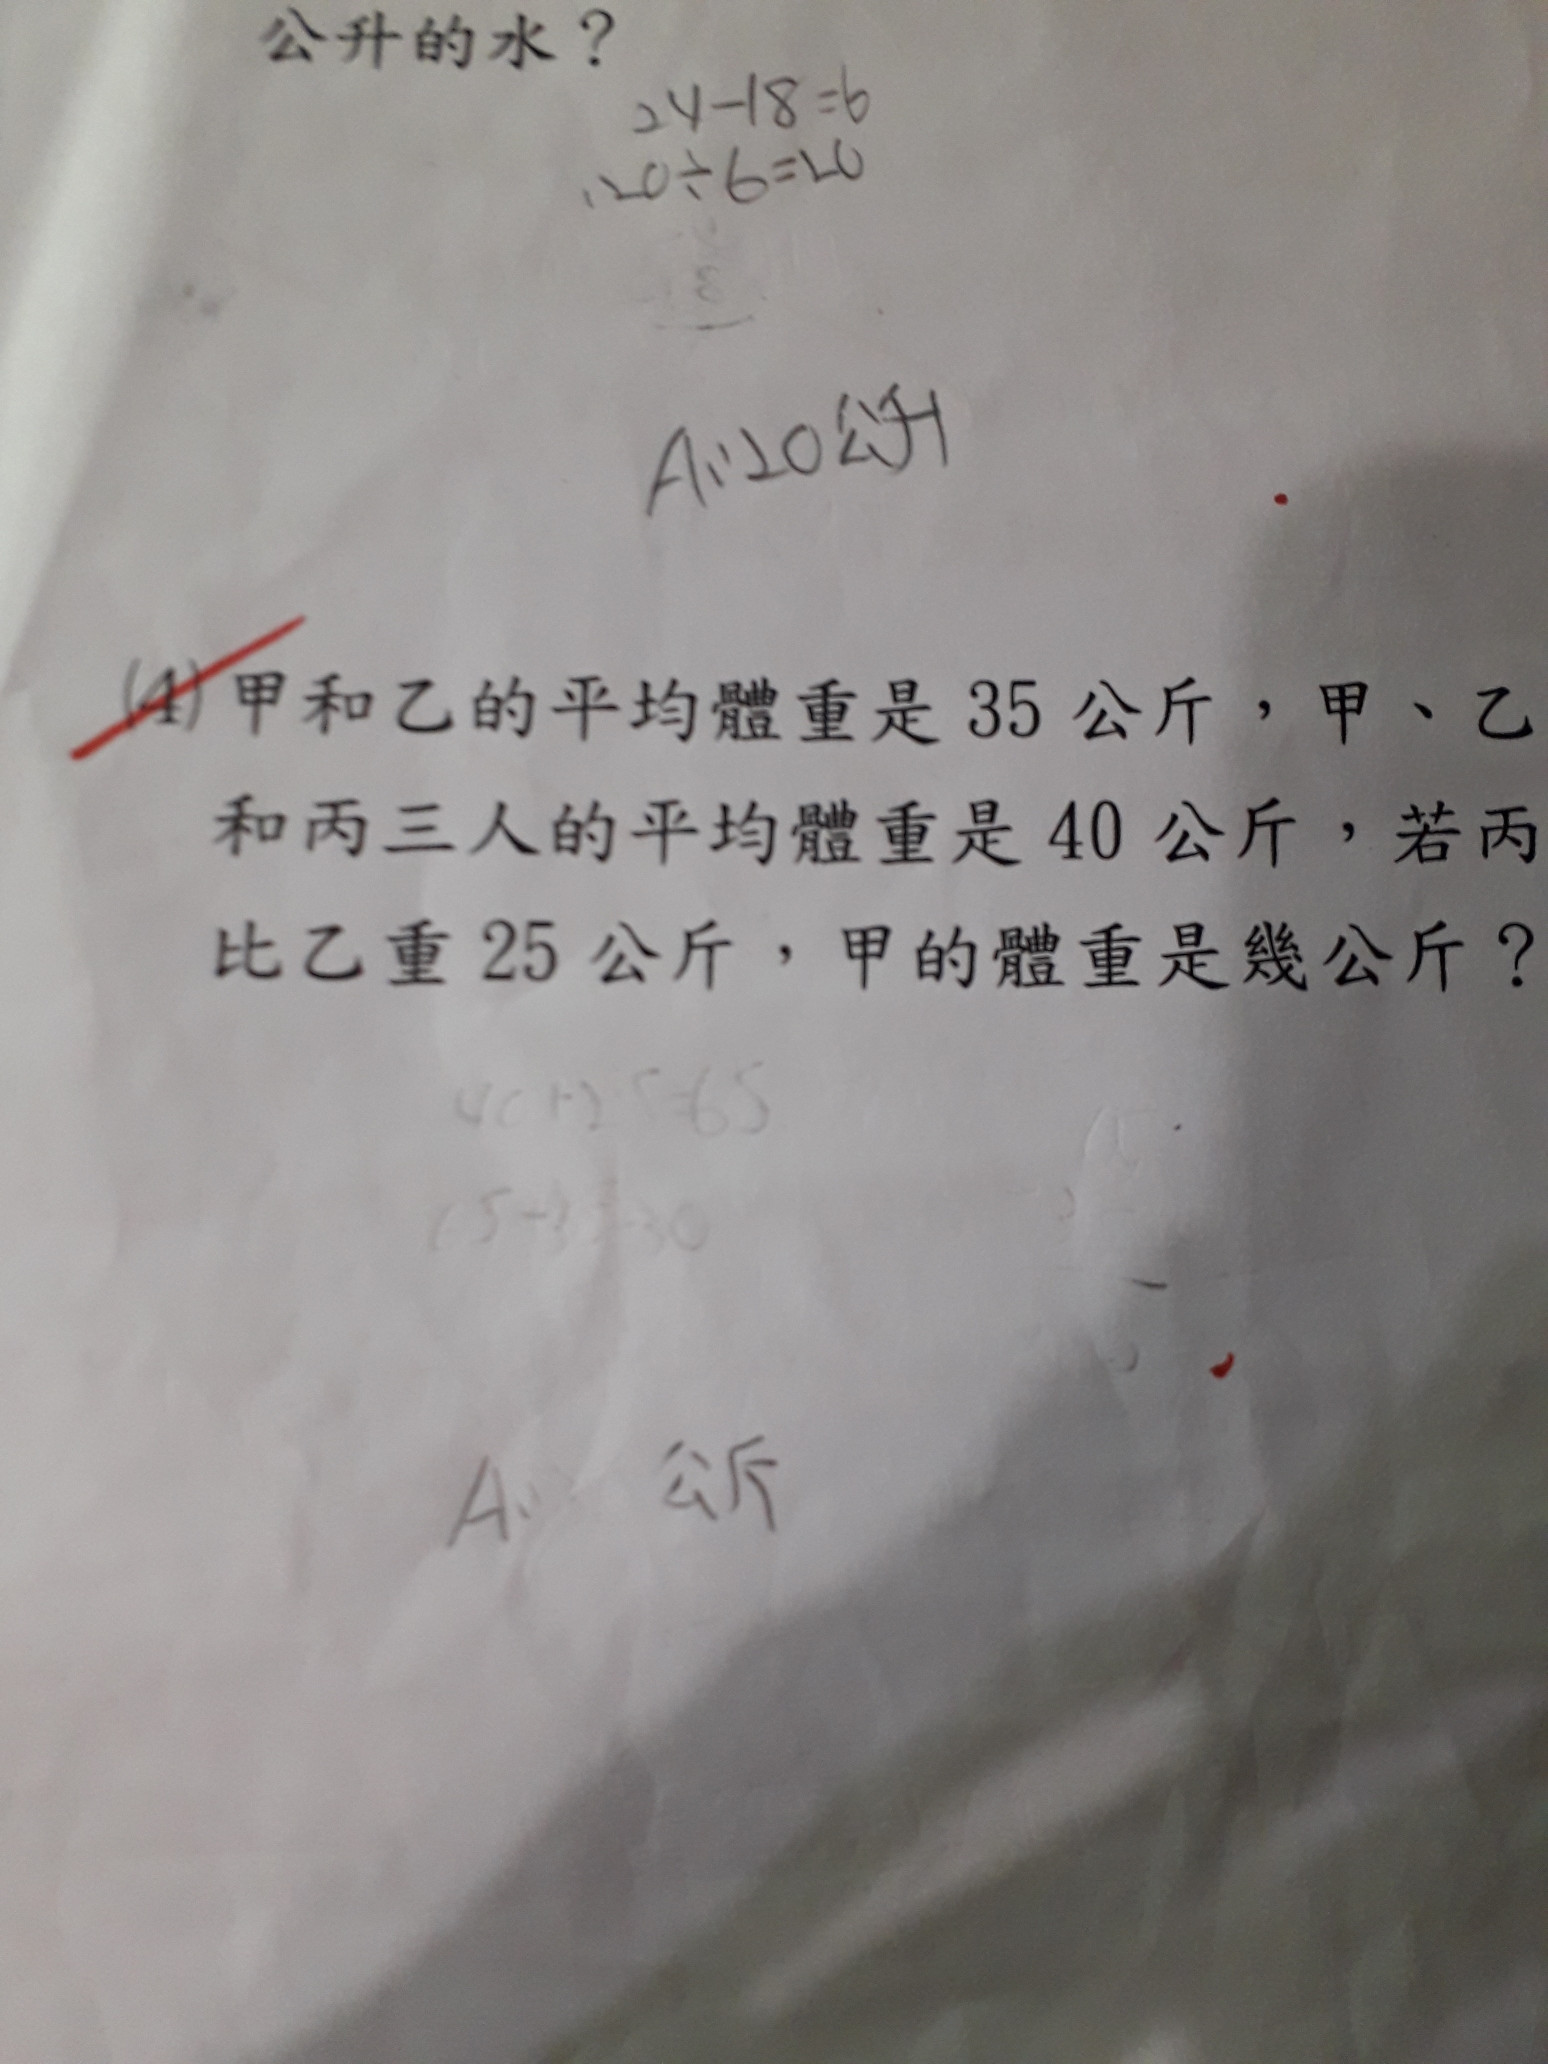 公升的水？
24-18=6
120÷6=20
A:20公升
(4)甲和乙的平均體重是35公斤，甲、乙
和丙三人的平均體重是40公斤，若丙
比乙重25公斤，甲的體重是幾公斤？
40+25=65
A: 公斤